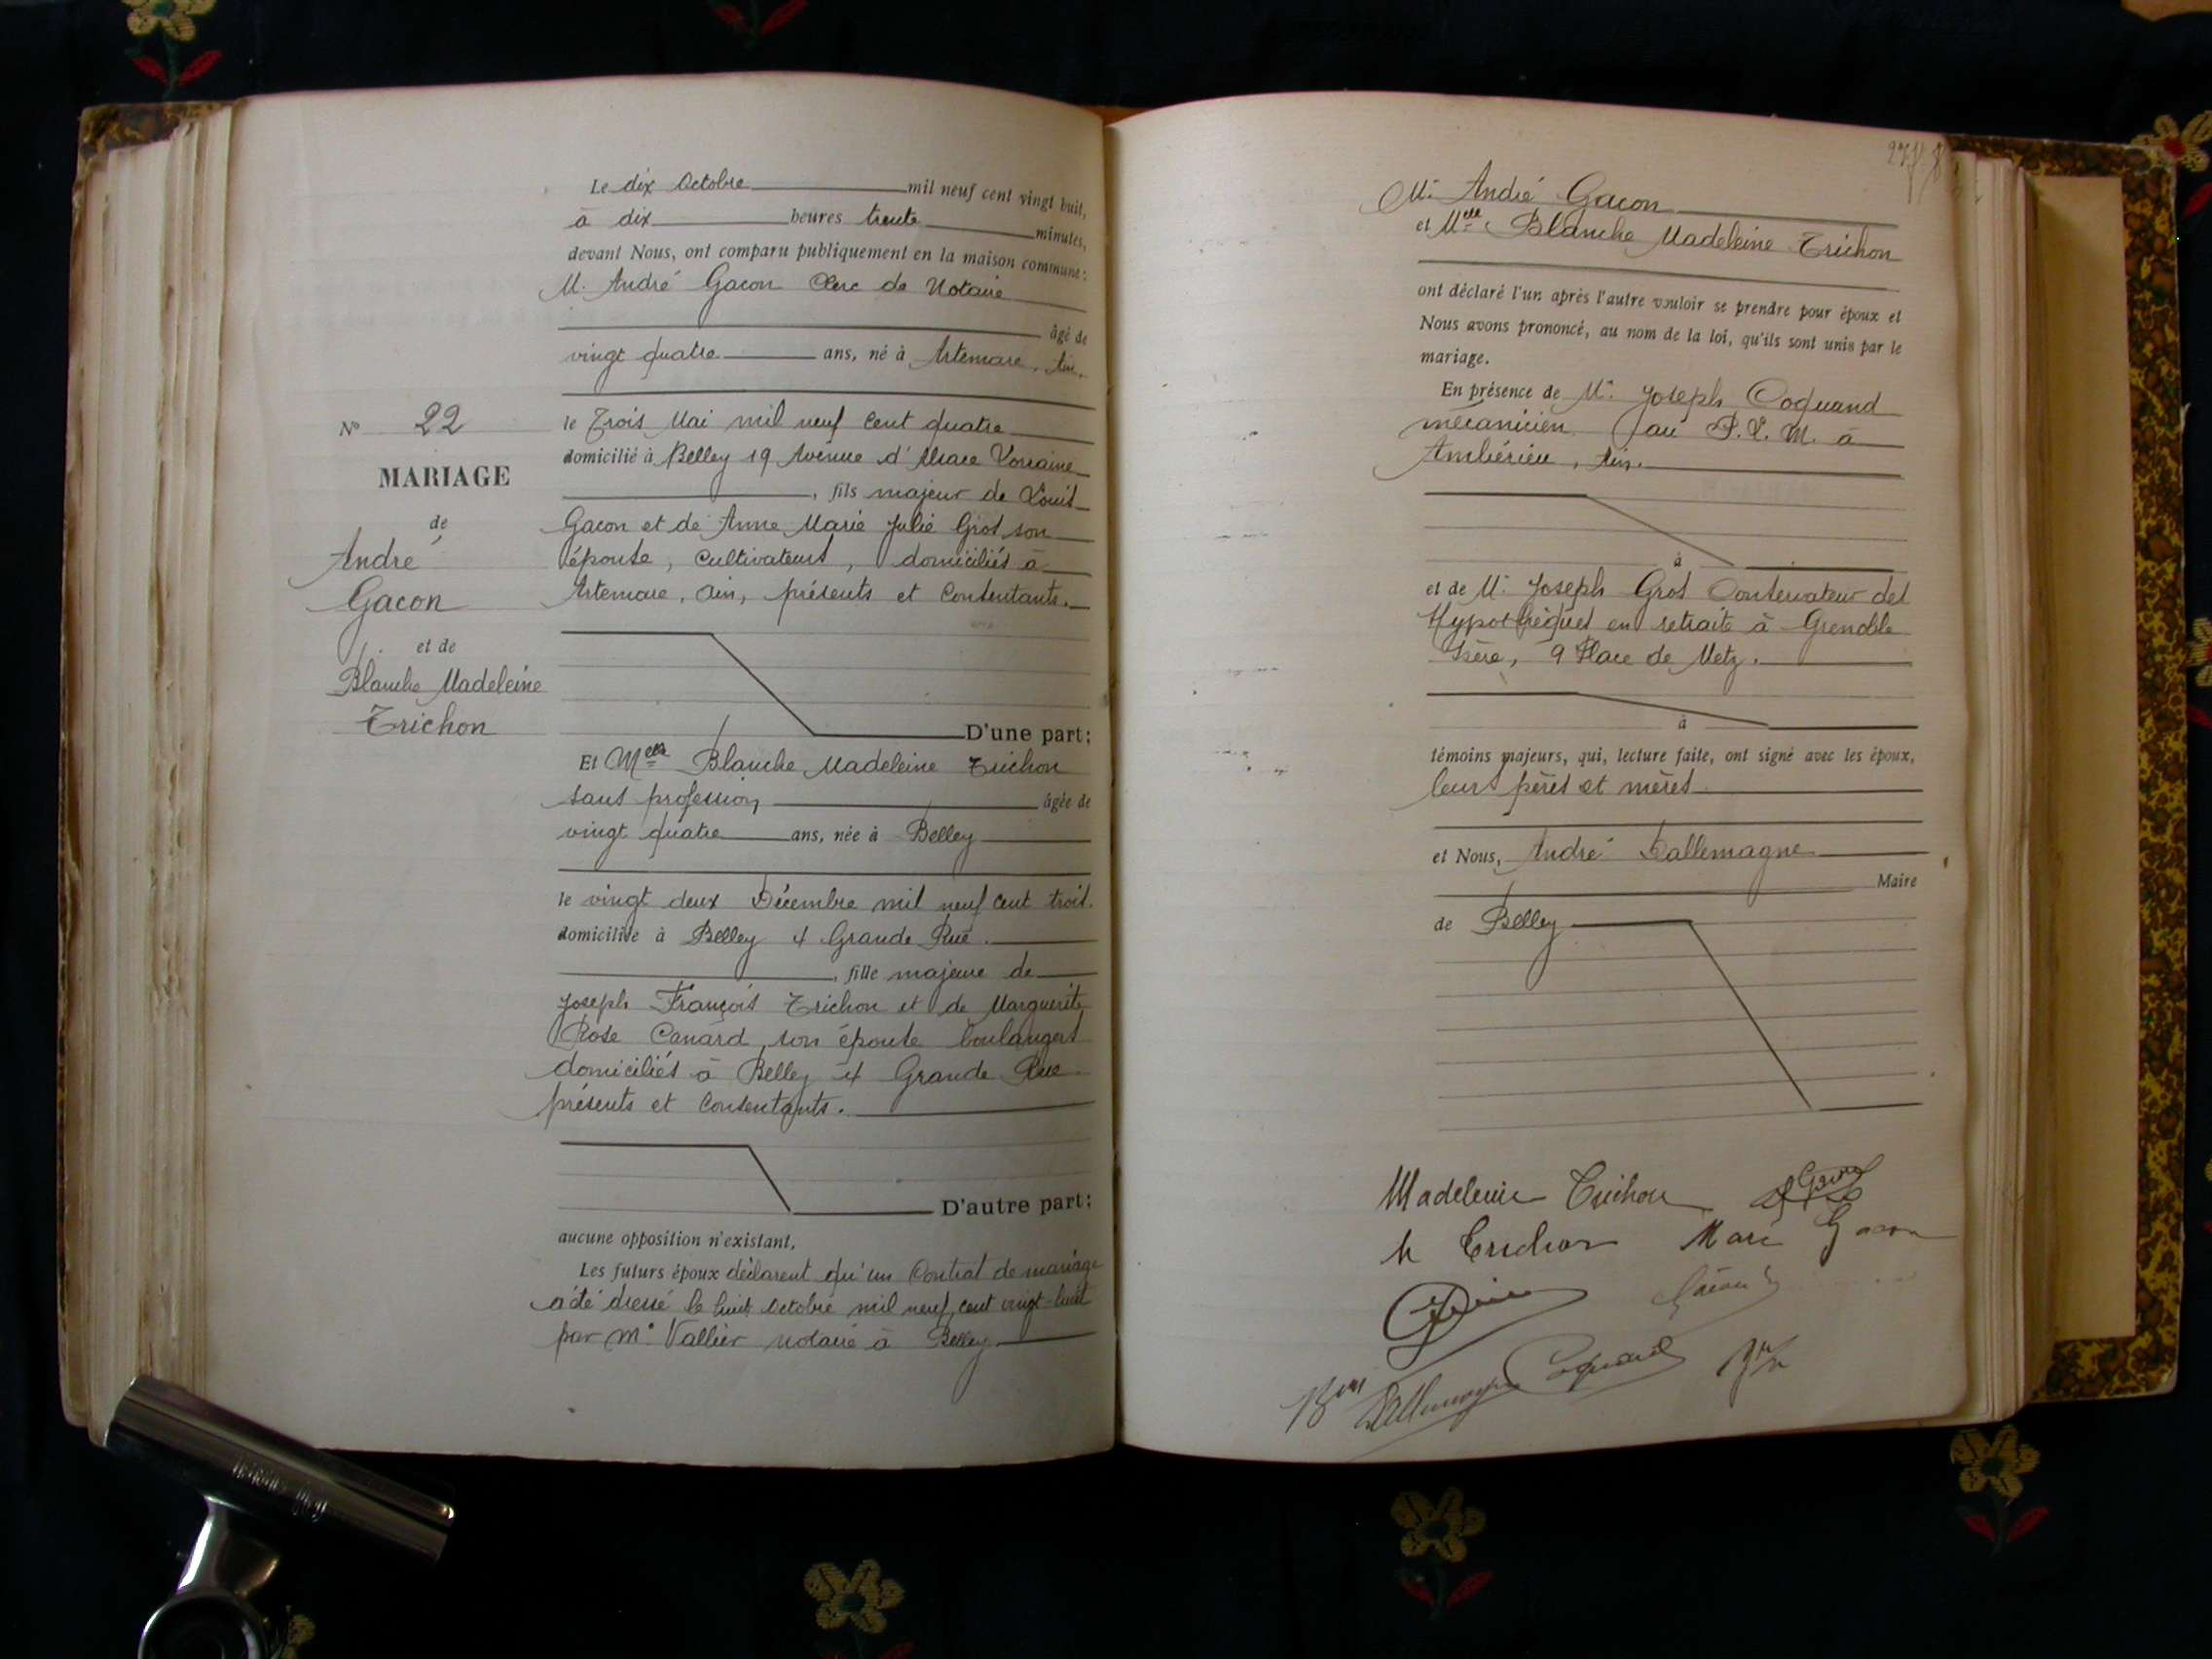 Le dix Octobre mil neuf cent vingt huit,
à dix heures trente minutes,
devant Nous, ont comparu publiquement en la maison commune :
M. André Gacon Clerc de Notaire
âgé de
vingt quatre ans, né à Artemare, Ain,
le Trois Mai mil neuf cent quatre
domicilié à Belley 19 Avenue d'Alsace Lorraine
, fils majeur de Louis
Gacon et de Anne Marie Julie Gros son
épouse, Cultivateurs, domiciliés à
Artemare, Ain, présents et Consentants.
D'une part;
Nº 22
MARIAGE
de
André
Gacon
et de
Blanche Madeleine
Trichon
Et Melle Blanche Madeleine Trichon
sans profession, âgée de
vingt quatre ans, née à Belley
le vingt deux Décembre mil neuf cent trois.
domiciliée à Belley 4 Grande Rue.
, fille majeure de
Joseph François Trichon et de Marguerite
Rose Canard, son épouse boulangers
domiciliés à Belley 4 Grande Rue
présents et Consentants.
D'autre part;
aucune opposition n'existant.
Les futurs époux déclarent qu'un Contrat de mariage
a été dressé le huit Octobre mil neuf cent vingt-huit
par Me Vallier notaire à Belley
M. André Gacon
et Melle Blanche Madeleine Trichon
ont déclaré l'un après l'autre vouloir se prendre pour époux et
Nous avons prononcé, au nom de la loi, qu'ils sont unis par le
mariage.
En présence de M. Joseph Coquand
mécanicien au P. L. M. à
Ambérieu, Ain.
à
et de M. Joseph Gros Conservateur des
Hypothèques en retraite à Grenoble
Isère, 9 Place de Metz.
à
témoins majeurs, qui, lecture faite, ont signé avec les époux,
leurs pères et mères
et Nous, André Dallemagne
Maire
de Belley
Madeleine Trichon
Trichon Marie Gacon
Dallemagne Coquand